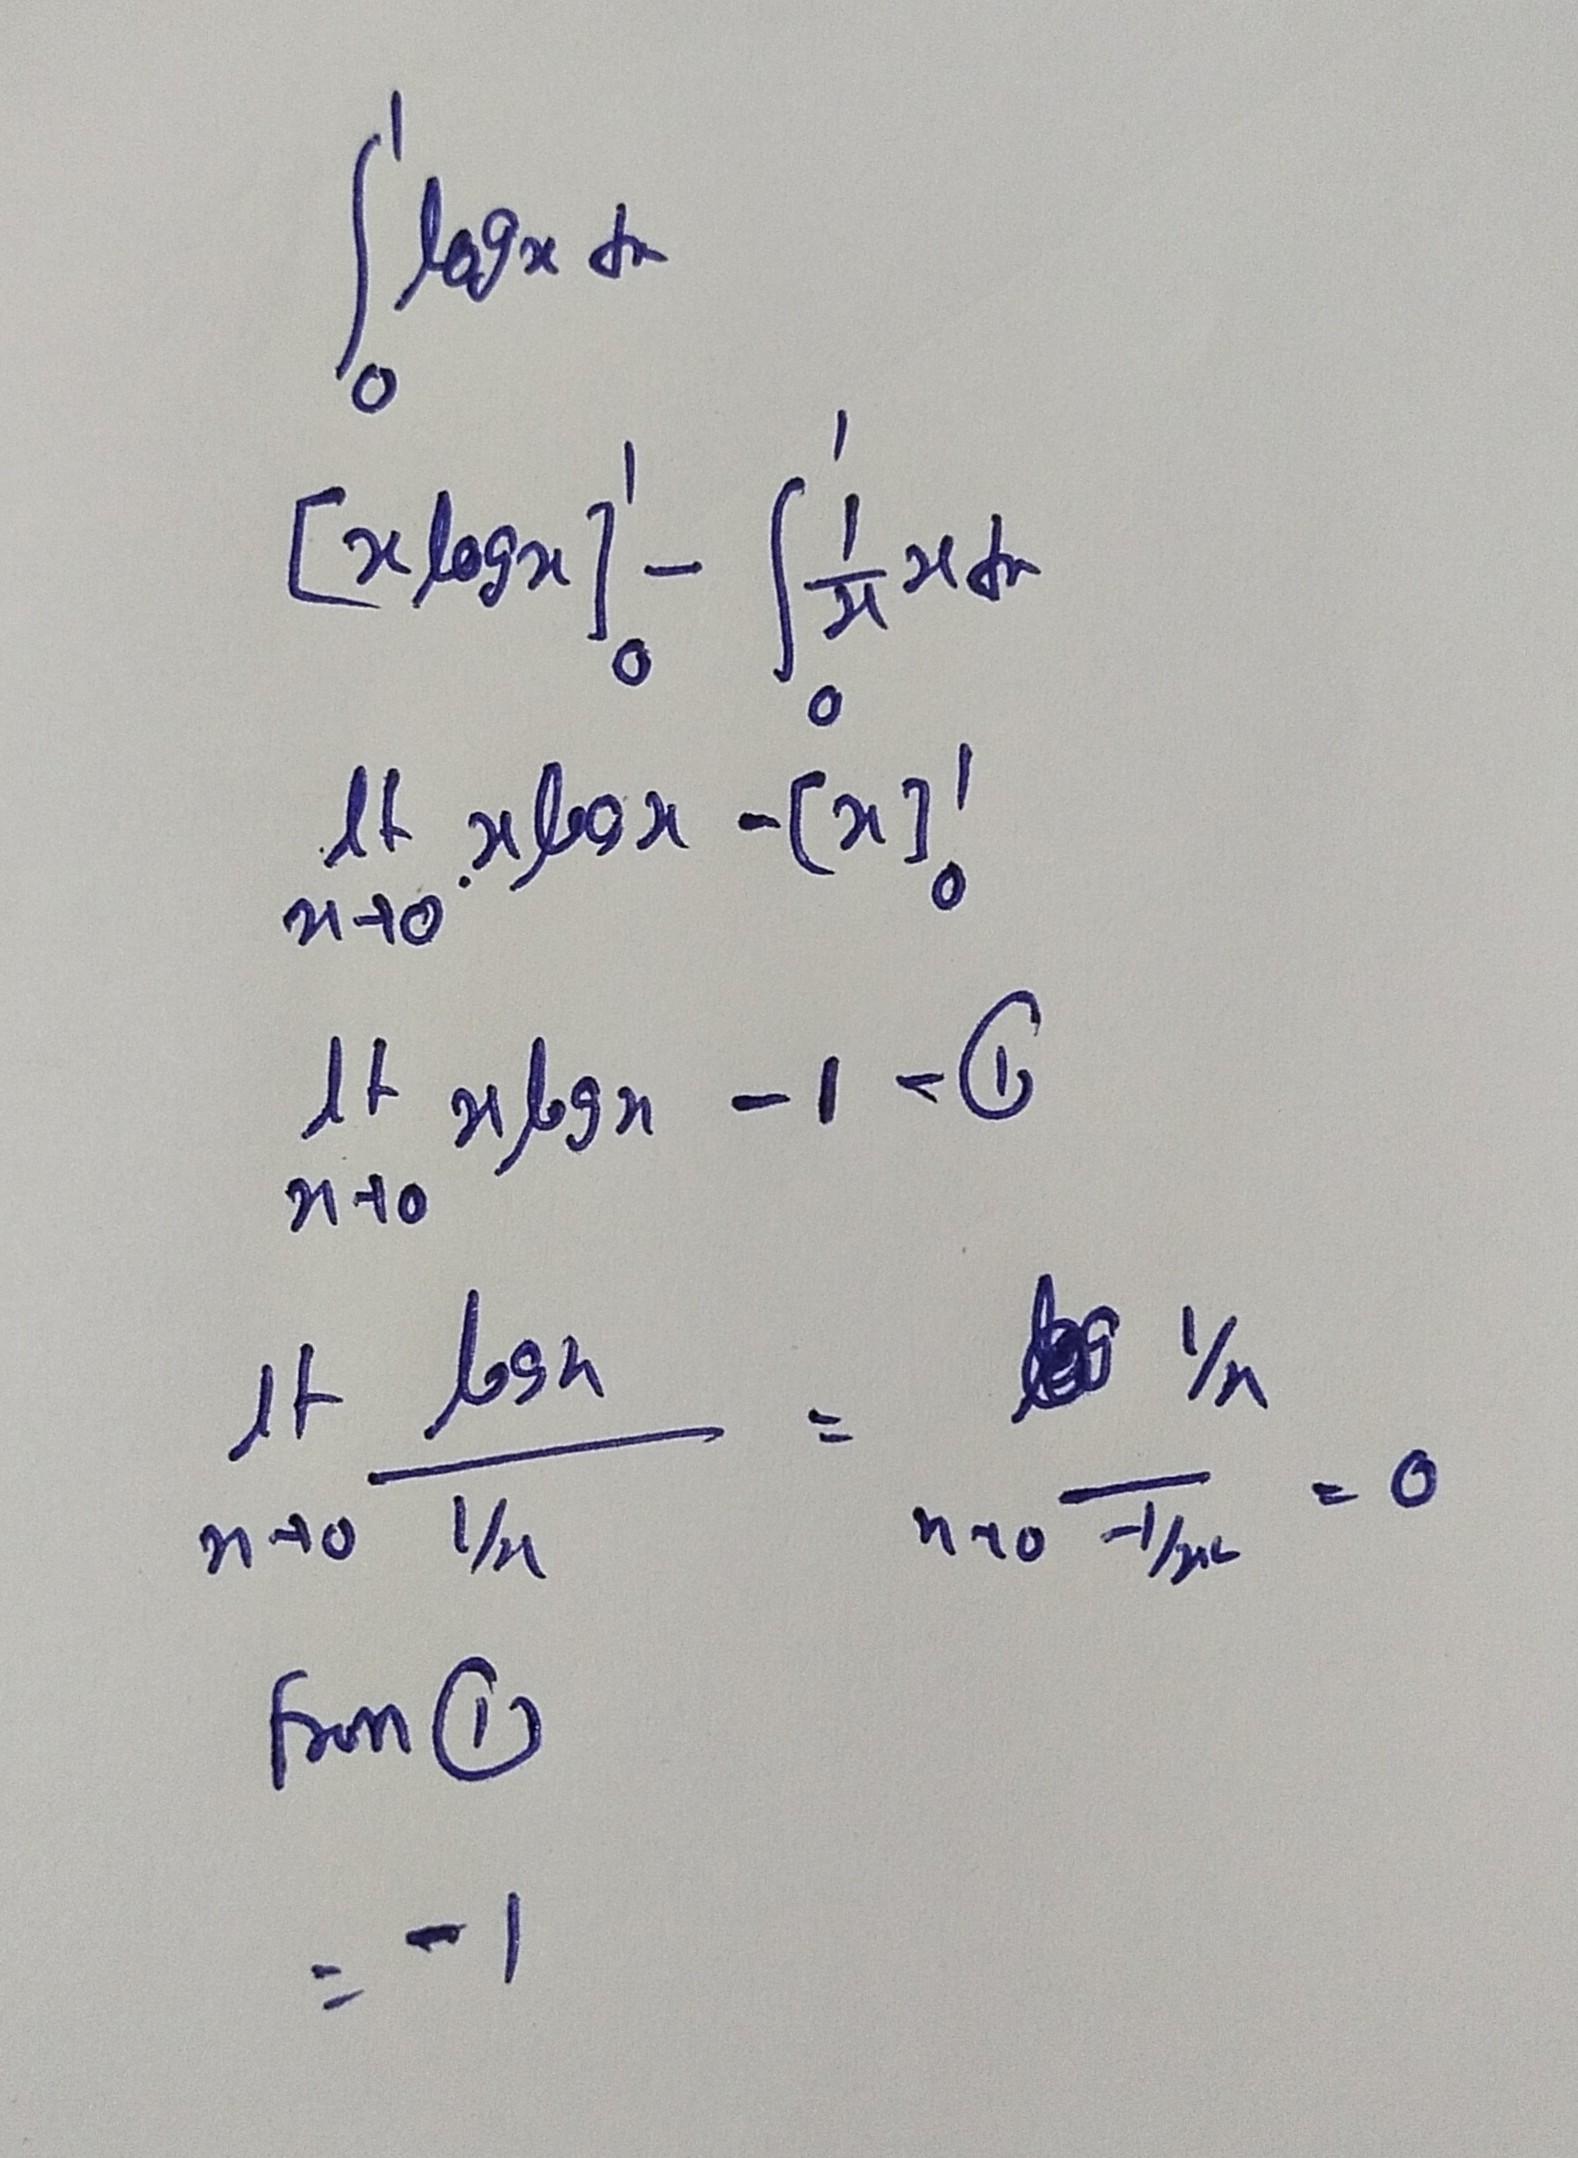 ∫₀¹ log x dx
[x log x]₀¹ - ∫₀¹ 1/x x dx
lt x→0 x log x - [x]₀¹
lt x→0 x log x - 1 - ①
lt x→0 log x / 1/x = x→0 1/x / -1/x² = 0
from ①
= -1